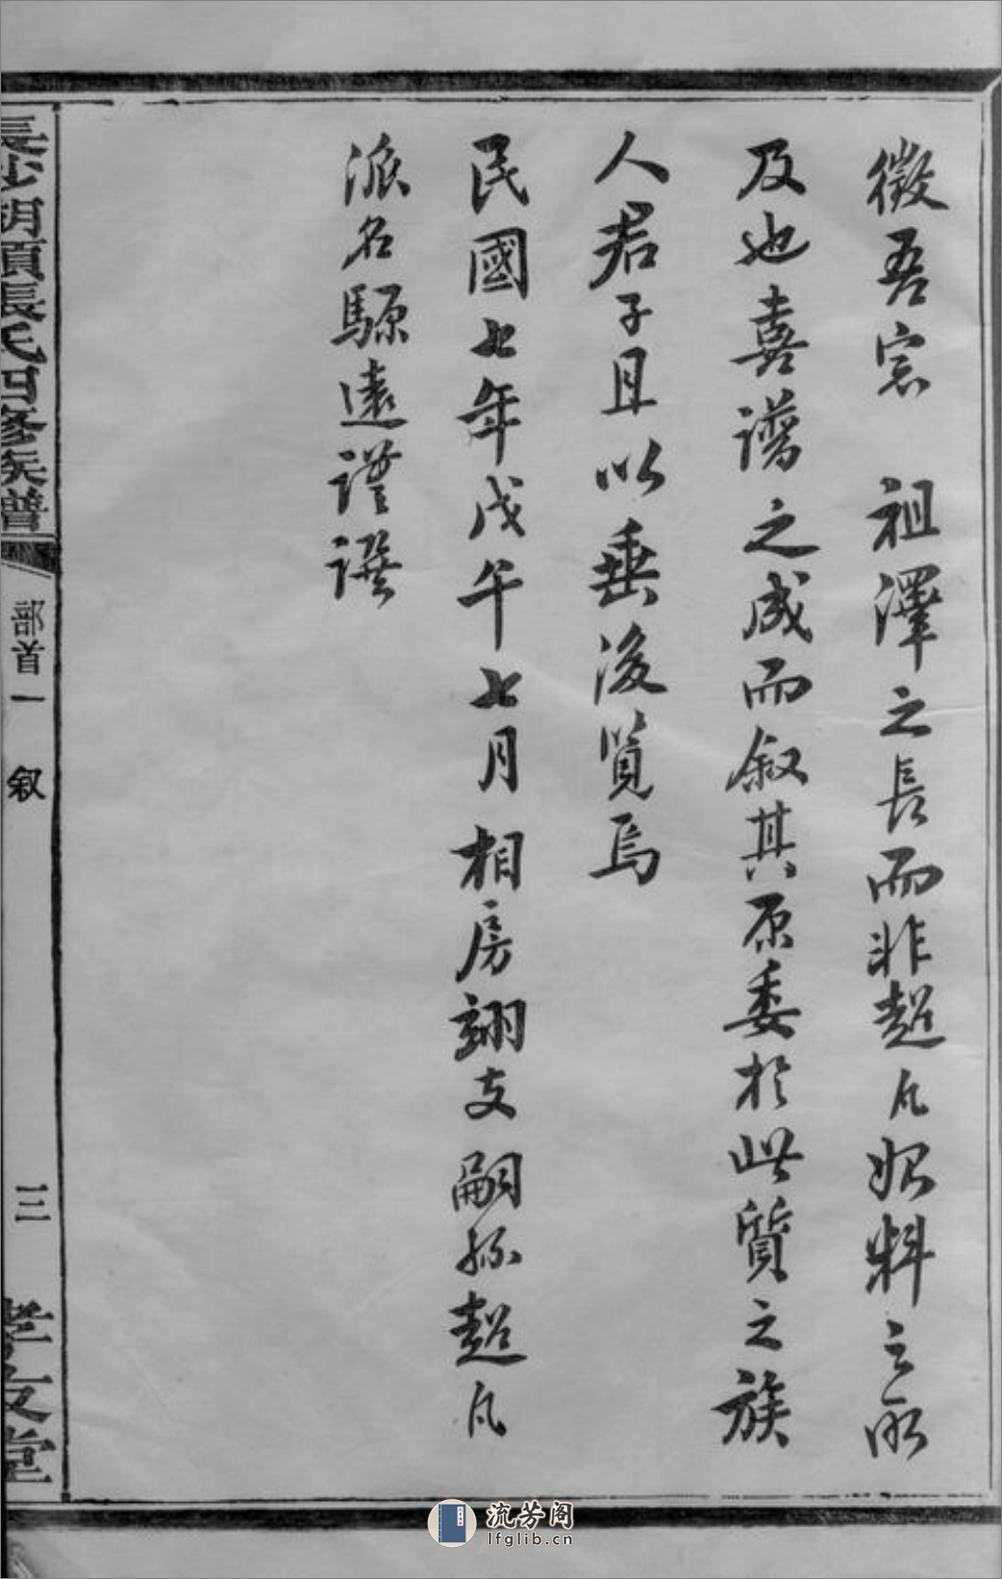 徵吾宗　祖澤之長而非超凡始料之所
及也喜譜之成而敘其原委於此質之族
人君子且以垂後覽焉
民國七年戊午七月　相房翊支嗣孫超凡
派名騵遠謹譔
長沙胡頭張氏四修族譜
部首一　敘
三
孝友堂
流芳阁
lfglib.cn